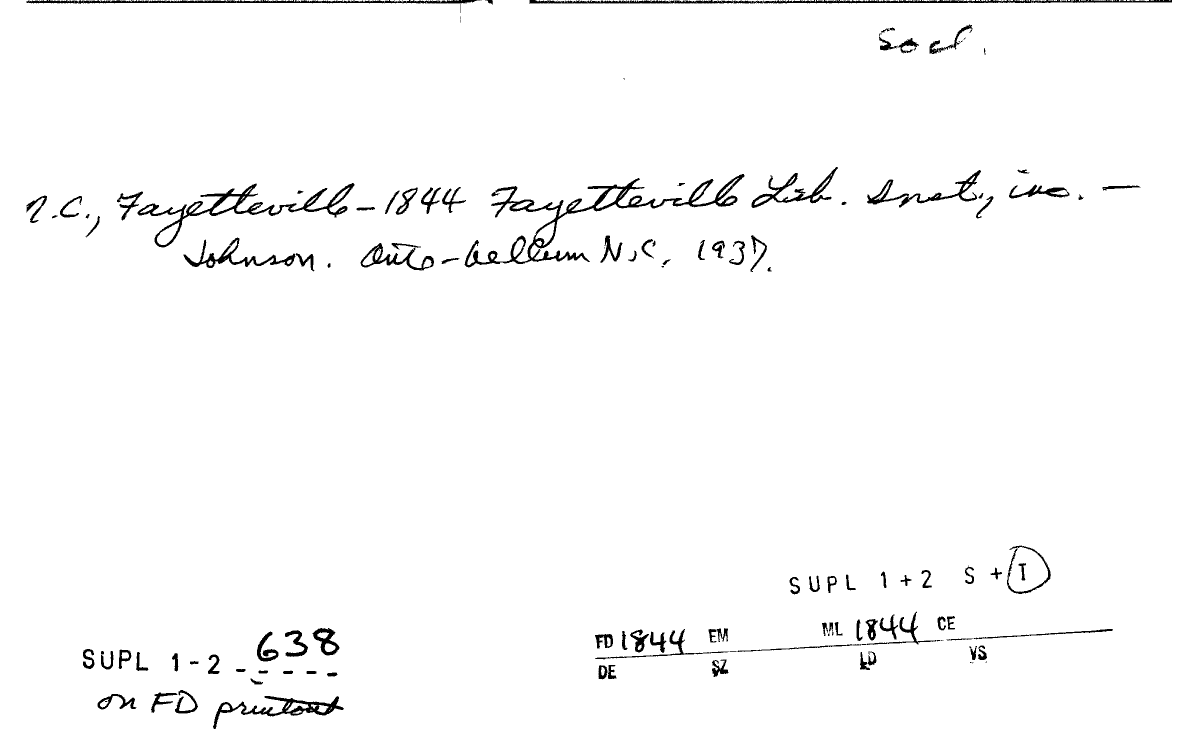 Socl.
N.C., Fayetteville - 1844 Fayetteville Lib. Inst., inc. -
Johnson. Ante-bellum N.C. 1937.
SUPL 1+2 S + I
FD 1844 EM ML 1844 CE
DE SZ LD VS
SUPL 1-2 - 638
on FD printout